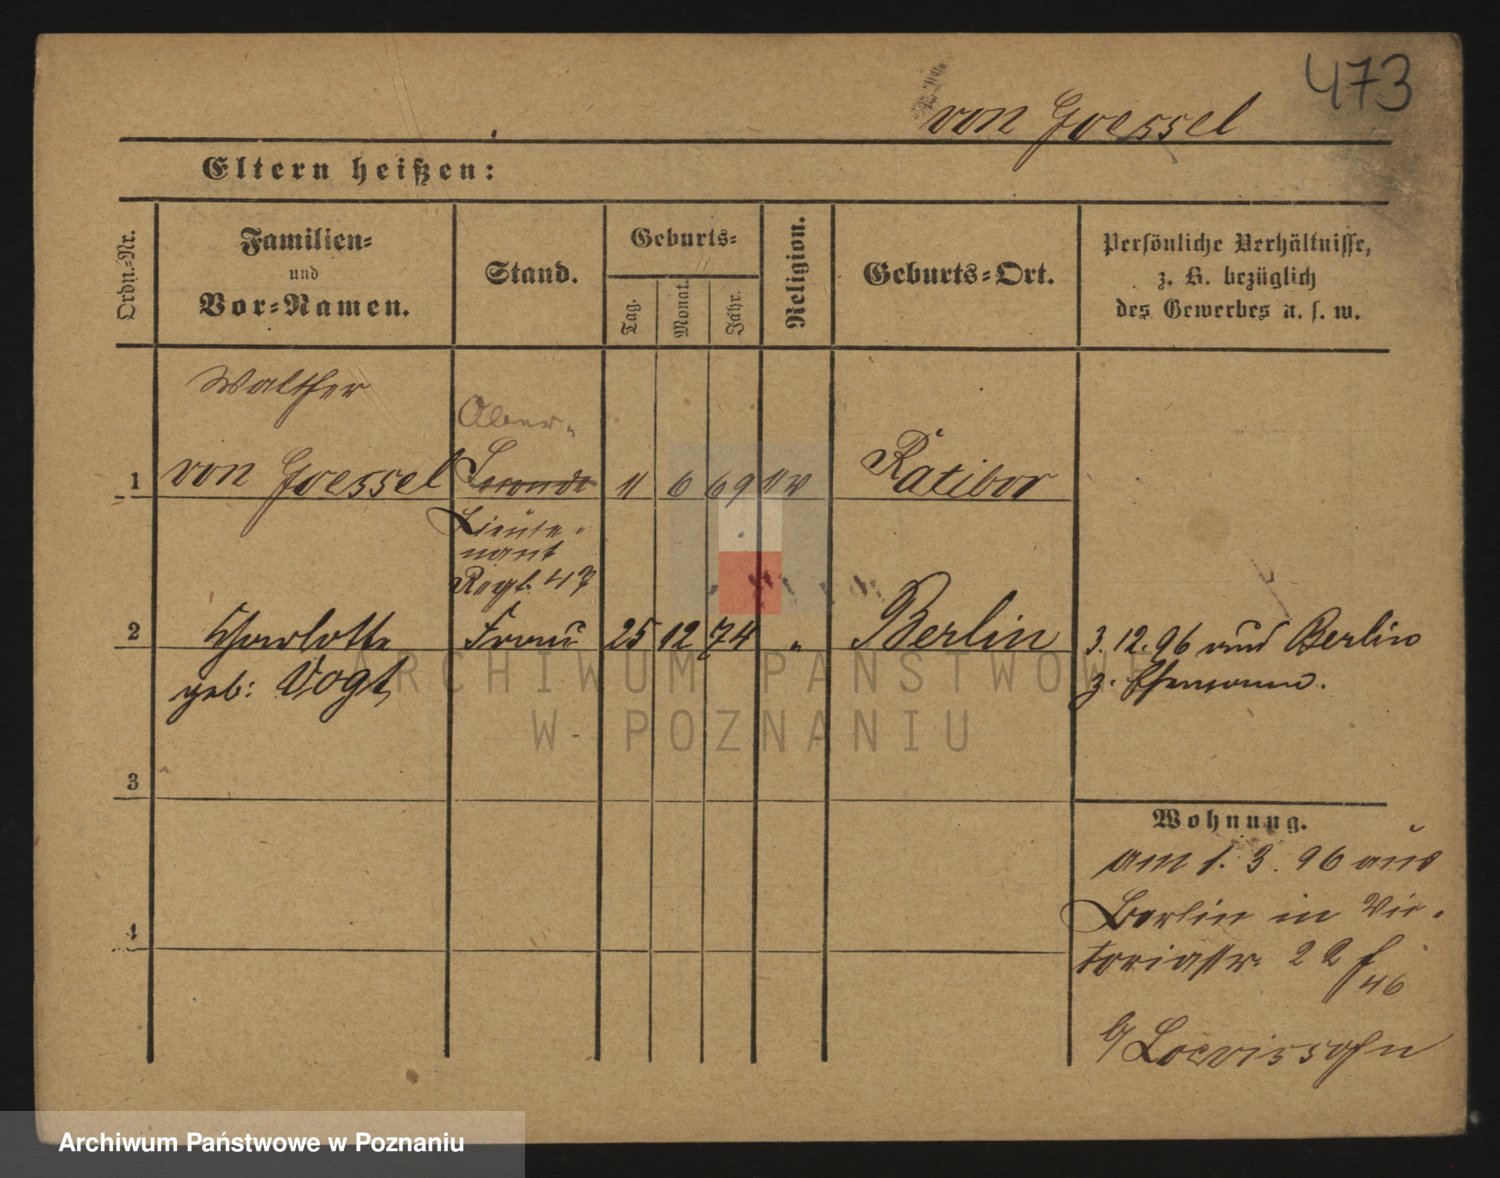 473
von Joessel
Eltern heißen:
Ordn.-Nr.
Familien-
und
Vor-Namen.
Stand.
Geburts-
Tag.
Monat.
Jahr.
Religion.
Geburts-Ort.
Persönliche Verhältnisse,
z. B. bezüglich
des Gewerbes u. s. w.
Walther
Ober-
1 von Joessel Seconde 11 6 69 ev Ratibor
Lieute-
nant
Regt. 47
2 Charlotte Frau 25 12 74 " Berlin 3. 12. 96 aus Berlin
geb: Vogt z. Ehemann.
3
Wohnung.
am 1. 3. 96 aus
4 Berlin in Vic-
toriastr. 22
46
b/ Loevissohn
ARCHIWUM PAŃSTWOWE
W POZNANIU
Archiwum Państwowe w Poznaniu